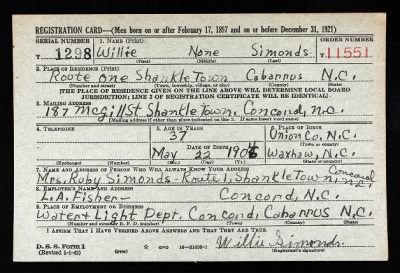 REGISTRATION CARD—(Men born on or after February 17, 1897 and on or before December 31, 1921)
SERIAL NUMBER 1. NAME (Print) ORDER NUMBER
T 1298 Willie None Simonds 11551
(First) (Middle) (Last)
2. PLACE OF RESIDENCE (Print)
Route one Shankle Town Cabarrus N.C.
(Number and street) (Town, township, village, or city) (County) (State)
[THE PLACE OF RESIDENCE GIVEN ON THE LINE ABOVE WILL DETERMINE LOCAL BOARD
JURISDICTION; LINE 2 OF REGISTRATION CERTIFICATE WILL BE IDENTICAL]
3. MAILING ADDRESS
187 McGill St Shankle Town, Concord, N.C.
[Mailing address if other than place indicated on line 2. If same insert word same]
4. TELEPHONE 5. AGE IN YEARS 6. PLACE OF BIRTH
37 Union Co. N.C.
DATE OF BIRTH (Town or county)
May 22 1905 Waxhaw, N.C.
(Exchange) (Number) (Mo.) (Day) (Yr.) (State or country)
7. NAME AND ADDRESS OF PERSON WHO WILL ALWAYS KNOW YOUR ADDRESS
Concord
Mrs. Ruby Simonds - Route 1, Shankle Town N.C.
8. EMPLOYER'S NAME AND ADDRESS
L.A. Fisher— Concord, N.C.
9. PLACE OF EMPLOYMENT OR BUSINESS
Water & Light Dept. Concord, Cabarrus N.C.
(Number and street or R. F. D. number) (Town) (County) (State)
I AFFIRM THAT I HAVE VERIFIED ABOVE ANSWERS AND THAT THEY ARE TRUE.
D. S. S. Form 1
(over) 16—21630-1
Willie Simonds